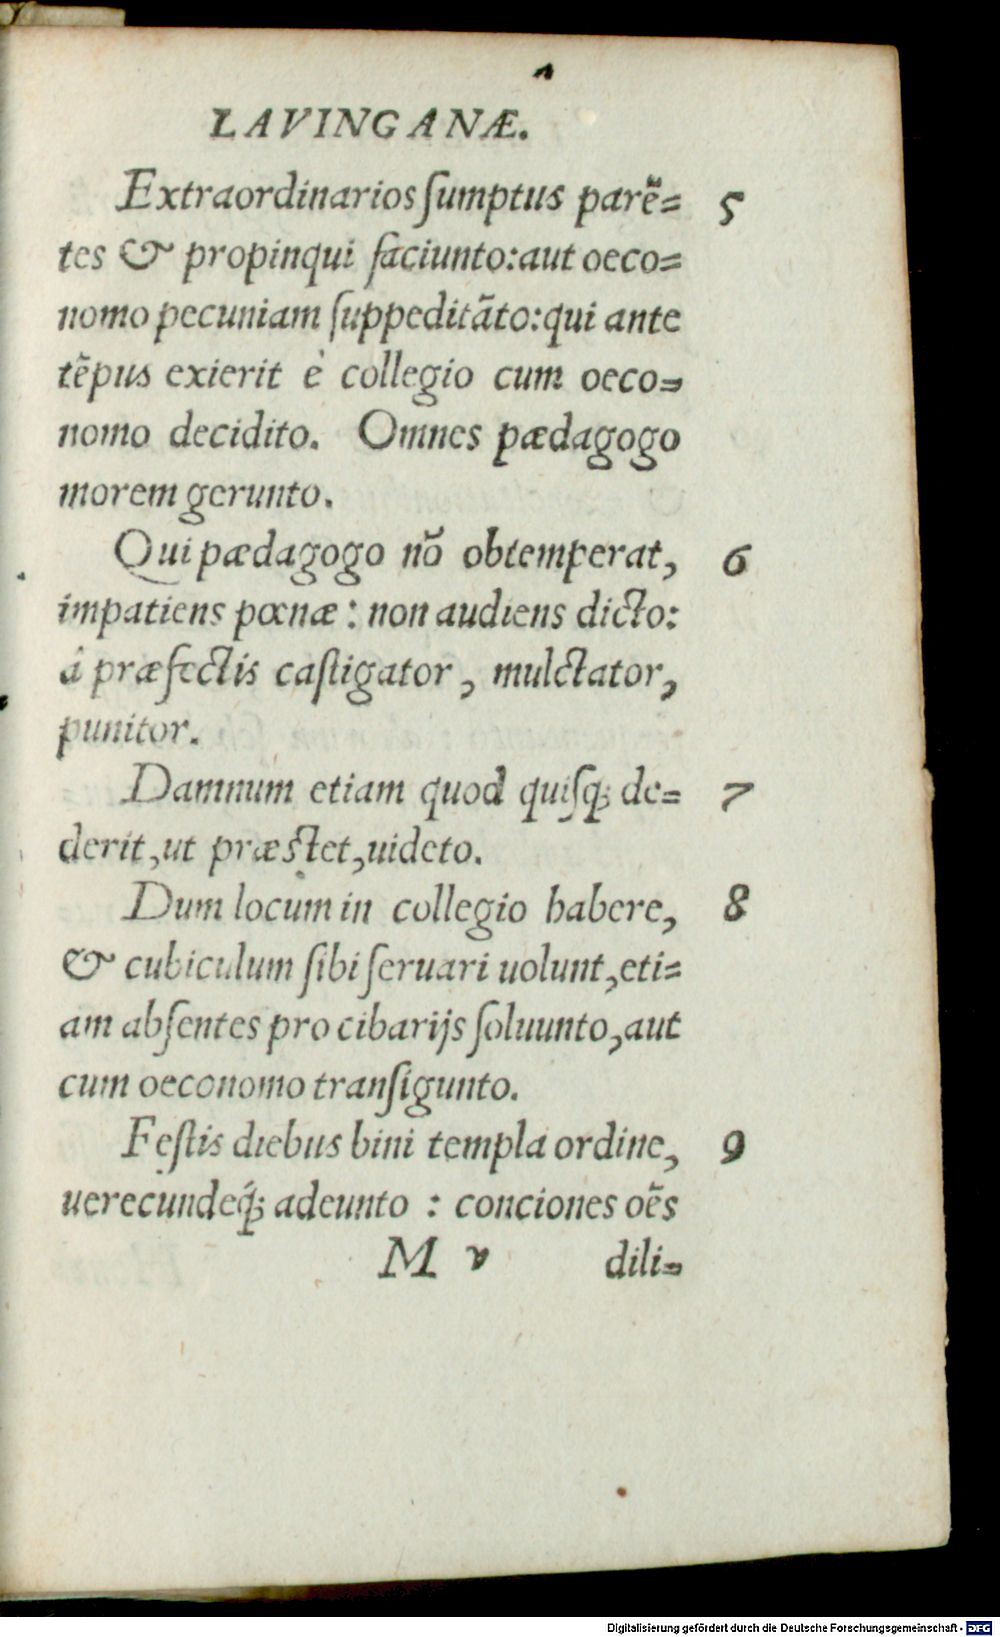 LAVINGANÆ.
Extraordinarios ſumptus parẽ= 5
tes & propinqui faciunto: aut oeco=
nomo pecuniam ſuppeditãto: qui ante
tẽpus exierit è collegio cum oeco=
nomo decidito. Omnes pædagogo
morem gerunto.
Qui pædagogo nõ obtemperat, 6
impatiens pœnæ: non audiens dicto:
à præfectis caſtigator, mulctator,
punitor.
Damnum etiam quod quiſq; de= 7
derit, ut præſtet, uideto.
Dum locum in collegio habere, 8
& cubiculum ſibi ſeruari uolunt, eti=
am abſentes pro cibarijs ſoluunto, aut
cum oeconomo tranſigunto.
Feſtis diebus bini templa ordine, 9
uerecundeq́; adeunto: conciones oẽs
M v dili=
Digitalisierung gefördert durch die Deutsche Forschungsgemeinschaft - DFG